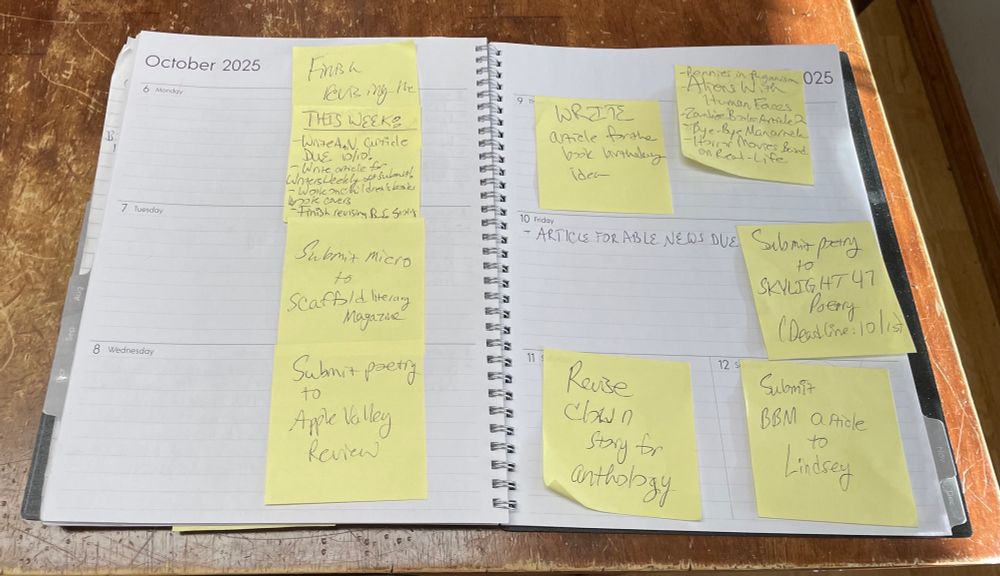 October 2025
6 Monday
Finish
revising the
THIS WEEK:
- Write A.N. article
DUE 10/10!
- Write article for
WritersWeekly
- Work on children's books
book covers
- Finish revising
7 Tuesday
Submit micro
to
Scaffold literary
Magazine
8 Wednesday
Submit poetry
to
Apple Valley
Review
025
9
WRITE
article for the
book anthology
idea
- Pennies in
- Aliens With
Human Faces
- Zombie Article 2
- Bye-Bye
- Horror Movies Based
on Real-Life
10 Friday
- ARTICLE FOR ABLE NEWS DUE
Submit poetry
to
SKYLIGHT 47
Poetry
(Deadline: 10/1st)
11 S
Revise
Clown
story for
anthology
12 S
Submit
BBM article
to
Lindsey